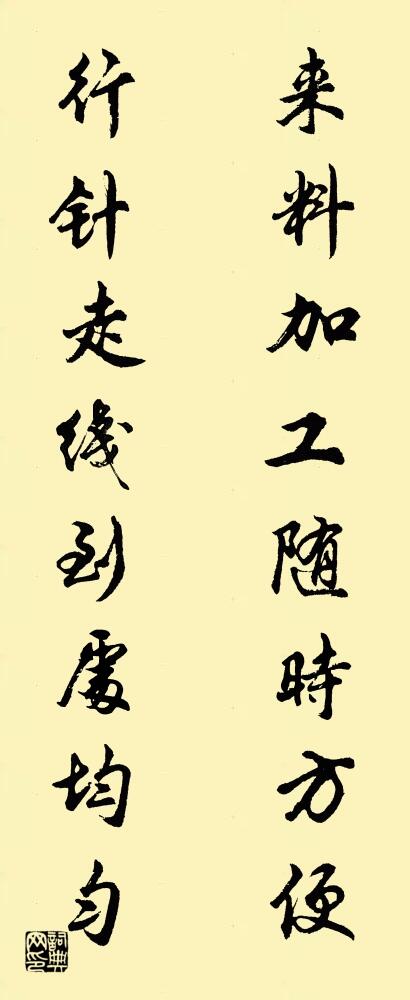 来料加工随時方便
行针走线到處均匀
詞典网印